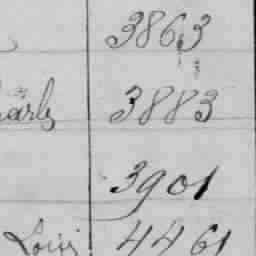 3863
3883
3901
Louis 4461